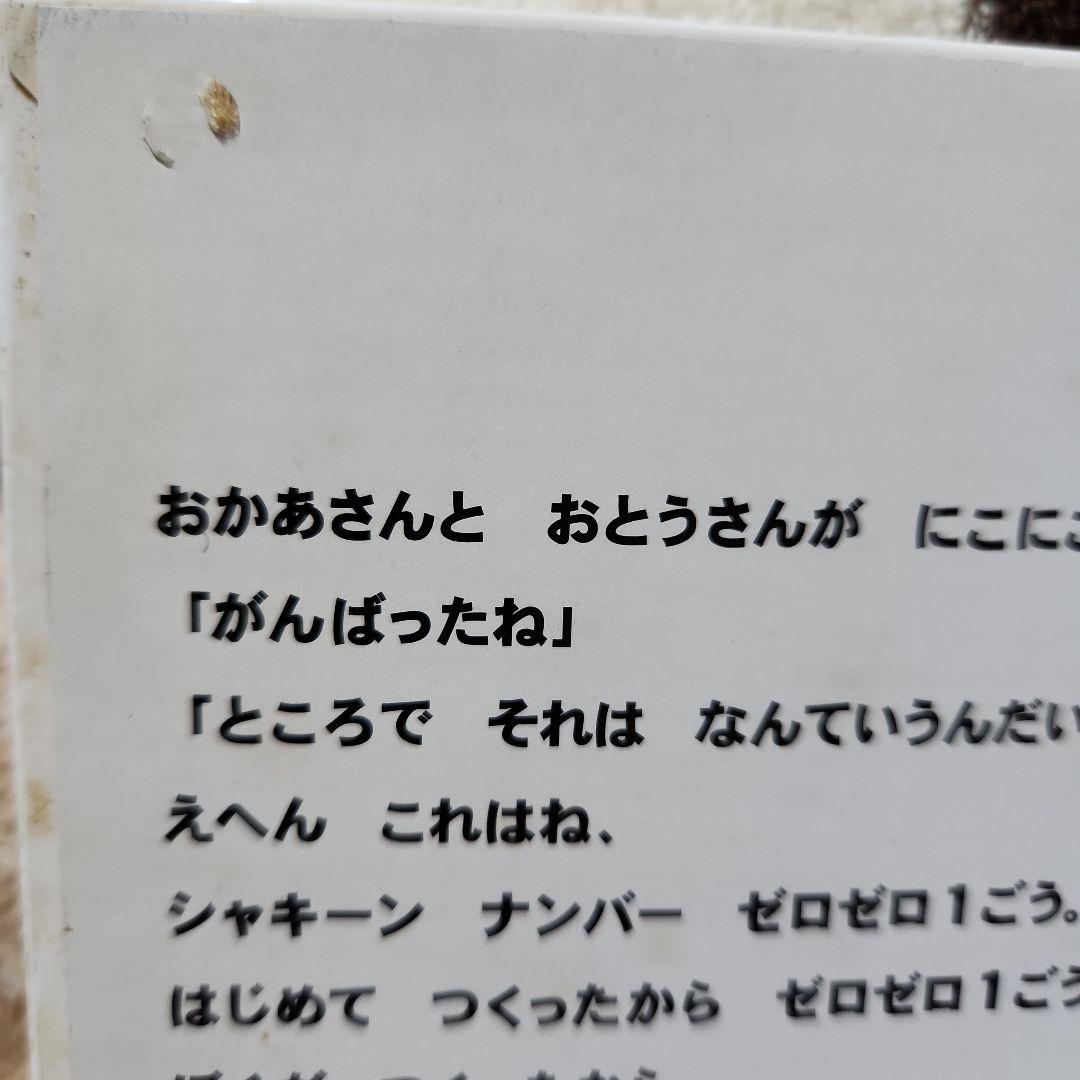 おかあさんと　おとうさんが　にこにこ
「がんばったね」
「ところで　それは　なんていうんだい
えへん　これはね、
シャキーン　ナンバー　ゼロゼロ1ごう。
はじめて　つくったから　ゼロゼロ1ごう